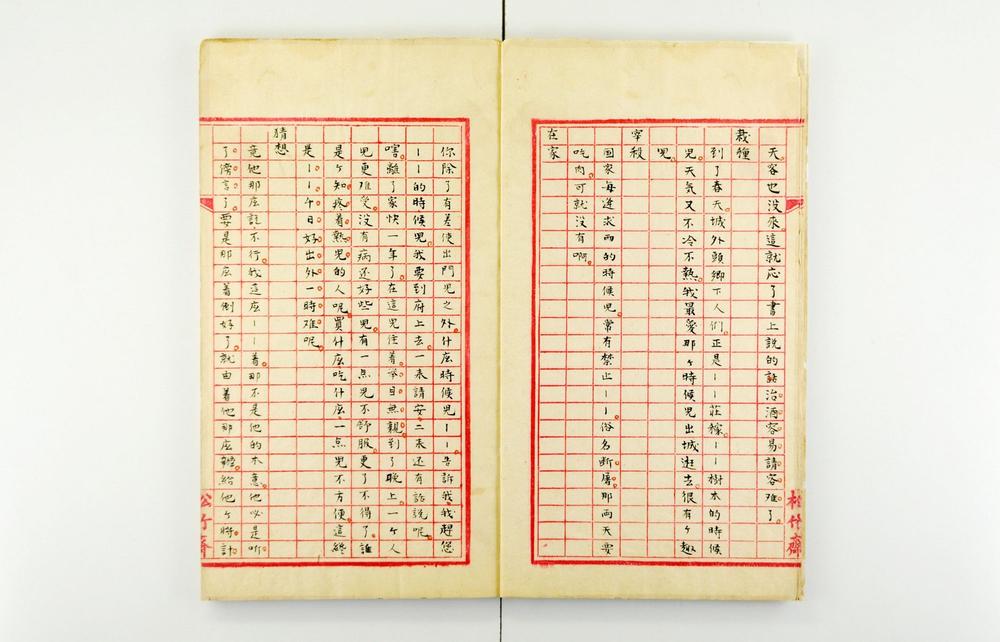 天。客也没來。這就应了書上說的話。治酒容易。請客难了。
松竹齋
栽種
到了春天。城外頭鄉下人們。正是｜｜莊稼。｜｜樹木的時候
兒。天氣又不冷不熱。我最愛那ヶ時候兒出城逛去。很有ヶ趣
兒。
宰殺
国家每逢求雨的時候兒。常有禁止｜｜。俗名断屠。那両天要
吃肉。可就没有啊。
在家
你除了有差使出門兒之外。什庅時候兒｜｜。告訴我。我趕您
｜｜的時候兒。我要到府上去。一来請安。二来还有話說呢。
嗐。離了家快一年了。在這兒住着。举目無親。到了晚上。一ヶ人
兒更难受。没有病还好些兒。有一点兒不舒服。更了不得了。誰
是ヶ知疼着熱兒的人呢。買什庅吃什庅。一点兒不方便。這終
是｜｜千日好。出外一時难呢。
猜想
竟他那庅說。不行。我這庅｜｜着。那不是他的本意。他必是听
了傍言了。要是那庅着倒好了。就由着他那庅辦。給他ヶ将計
松竹齋